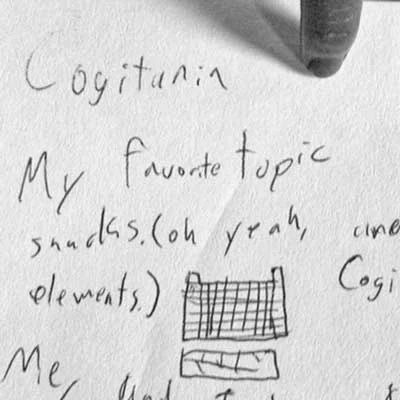 Cogitunin
My favorite topic
snacks. (oh yeah,
elements.) Cogi
Me,